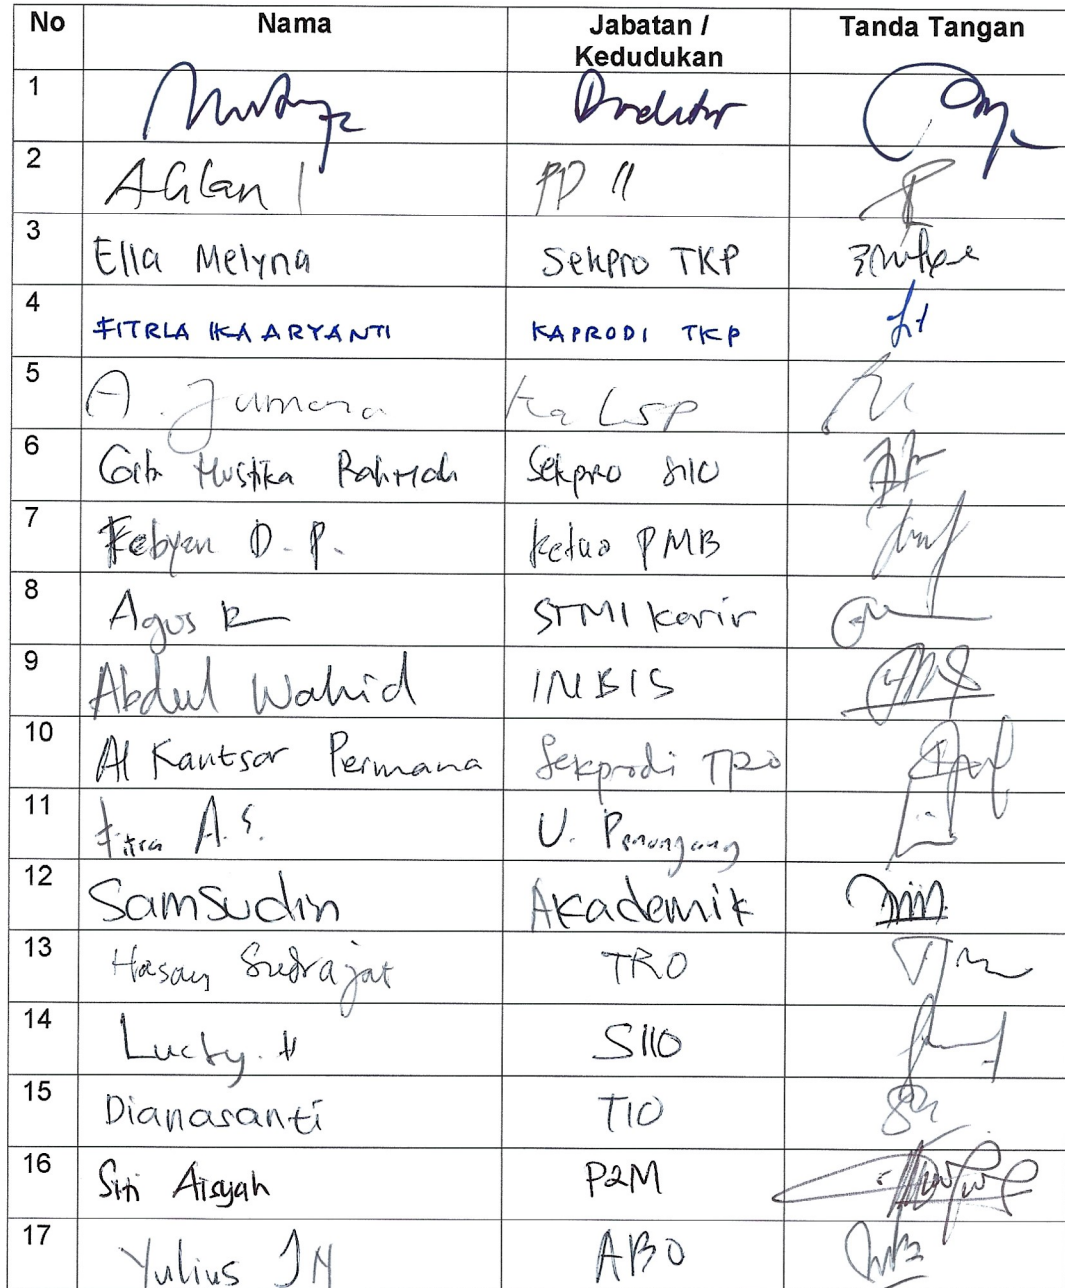 No Nama Jabatan / Tanda Tangan
Kedudukan
1 Direktur
2 Ahlan I PD II
3 Ella Melyna Sekpro TKP
4 FITRIA IKA ARYANTI KAPRODI TKP
5 A. Jumana Ka LSP
6 Gita Mustika Rahmah Sekpro SIIO
7 Febyan D. P. Ketua PMB
8 Agus STMI Karir
9 Abdul Wahid INBIS
10 Al Kautsar Permana Sekprodi TRO
11 Fitra A. S. U. Penunjang
12 Samsudin Akademik
13 Hasan Sudrajat TRO
14 Lucky. H SIIO
15 Dianasanti TIO
16 Siti Aisyah P2M
17 Yulius ABO